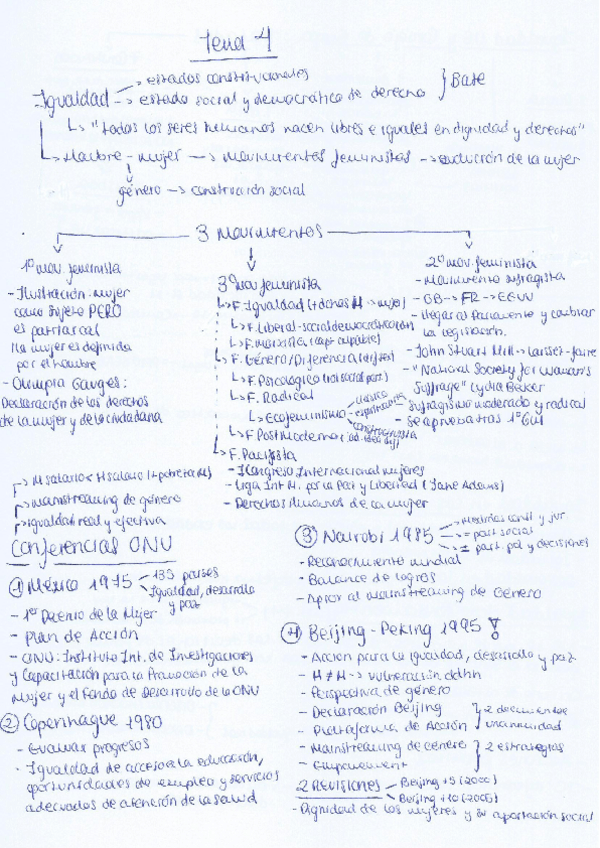 Tema 4
Igualdad -> estados constitucionales
-> estado social y democrático de derecho } Base
↳ "todos los seres humanos nacen libres e iguales en dignidad y derechos"
↳ Hombre - mujer -> movimientos feministas -> evolución de la mujer
género -> construcción social
3 movimientos
1º mov. feminista
- Ilustración. mujer
como sujeto PERO
es patriarcal
(la mujer es definida
por el hombre
- Olimpia Gouges:
Declaración de los derechos
de la mujer y de la ciudadana
3º mov feminista
↳ F. Igualdad
↳ F. liberal-socialdemocratización
↳ F. marxista
↳ F. Género/Diferencia
↳ F. Psicológico
↳ F. Radical
↳ Ecofeminismo - clásico
- espiritualista
- constructivista
↳ F. Postmoderno
↳ F. Pacifista
- I Congreso Internacional mujeres
- Liga Int M. por la Paz y Libertad (Jane Adams)
- Derechos Humanos de la mujer
2º mov. feminista
- Movimiento sufragista
- GB -> FR -> EEUU
- llegar al Parlamento y cambiar
la legislación.
- John Stuart Mill - laisser-faire
- "National Society for Woman's
Suffrage" Lydia Becker
- Sufragismo moderado y radical
- Se aprueba tras 1º GM
-> M salario ≠ H salario (+ pobreza M)
-> mainstreaming de género
-> igualdad real y efectiva
Conferencias ONU
① México 1975 - 133 países
Igualdad, desarrollo
y paz
- 1er Decenio de la Mujer
- Plan de Acción
- ONU: Instituto Int. de Investigaciones
y Capacitación para la Promoción de la
Mujer y el Fondo de Desarrollo de la ONU
② Copenhague 1980
- Evaluar progresos
- Igualdad de acceso a la educación,
oportunidades de empleo y servicios
adecuados de atención de la salud
③ Nairobi 1985 - Medidas const y jur
= part social
= part. pol y decisiones
- Reconocimiento mundial
- Balance de logros
- Aprox al mainstreaming de Género
④ Beijing - Peking 1995 !
- Acción para la igualdad, desarrollo y paz
- H ≠ M -> vulneración ddhh
- Perspectiva de género
- Declaración Beijing } 2 documentos
- Plataforma de Acción } unanimidad
- Mainstreaming de género } 2 estrategias
- Empowerment
2 REVISIONES - Beijing +5 (2000)
- Beijing +10 (2005)
- Dignidad de las mujeres y su aportación social